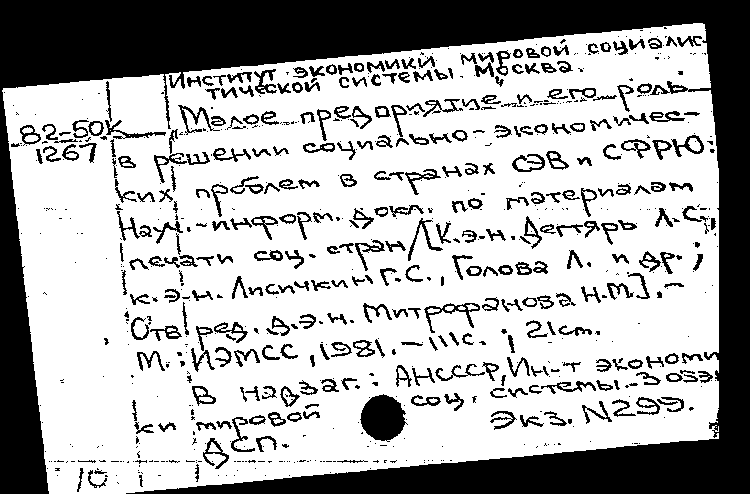 Институт экономики мировой социалис-
тической системы. Москва.
82-50К
1267
"Малое предприятие" и его роль
в решении социально-экономичес-
ких проблем в странах СЭВ и СФРЮ:
Науч.-информ. докл. по материалам
печати соц. стран/[К.э.н. Дегтярь Л.С.,
к.э.н. Лисичкин Г.С., Голова Л. и др.;
Отв. ред. д.э.н. Митрофанова Н.М.].-
М.: ИЭМСС, 1981.-111с.; 21cm.
В надзаг.: АНСССР, Ин-т экономи
ки мировой соц. системы.-3 оэз.
ДСП. Экз. N299.
10